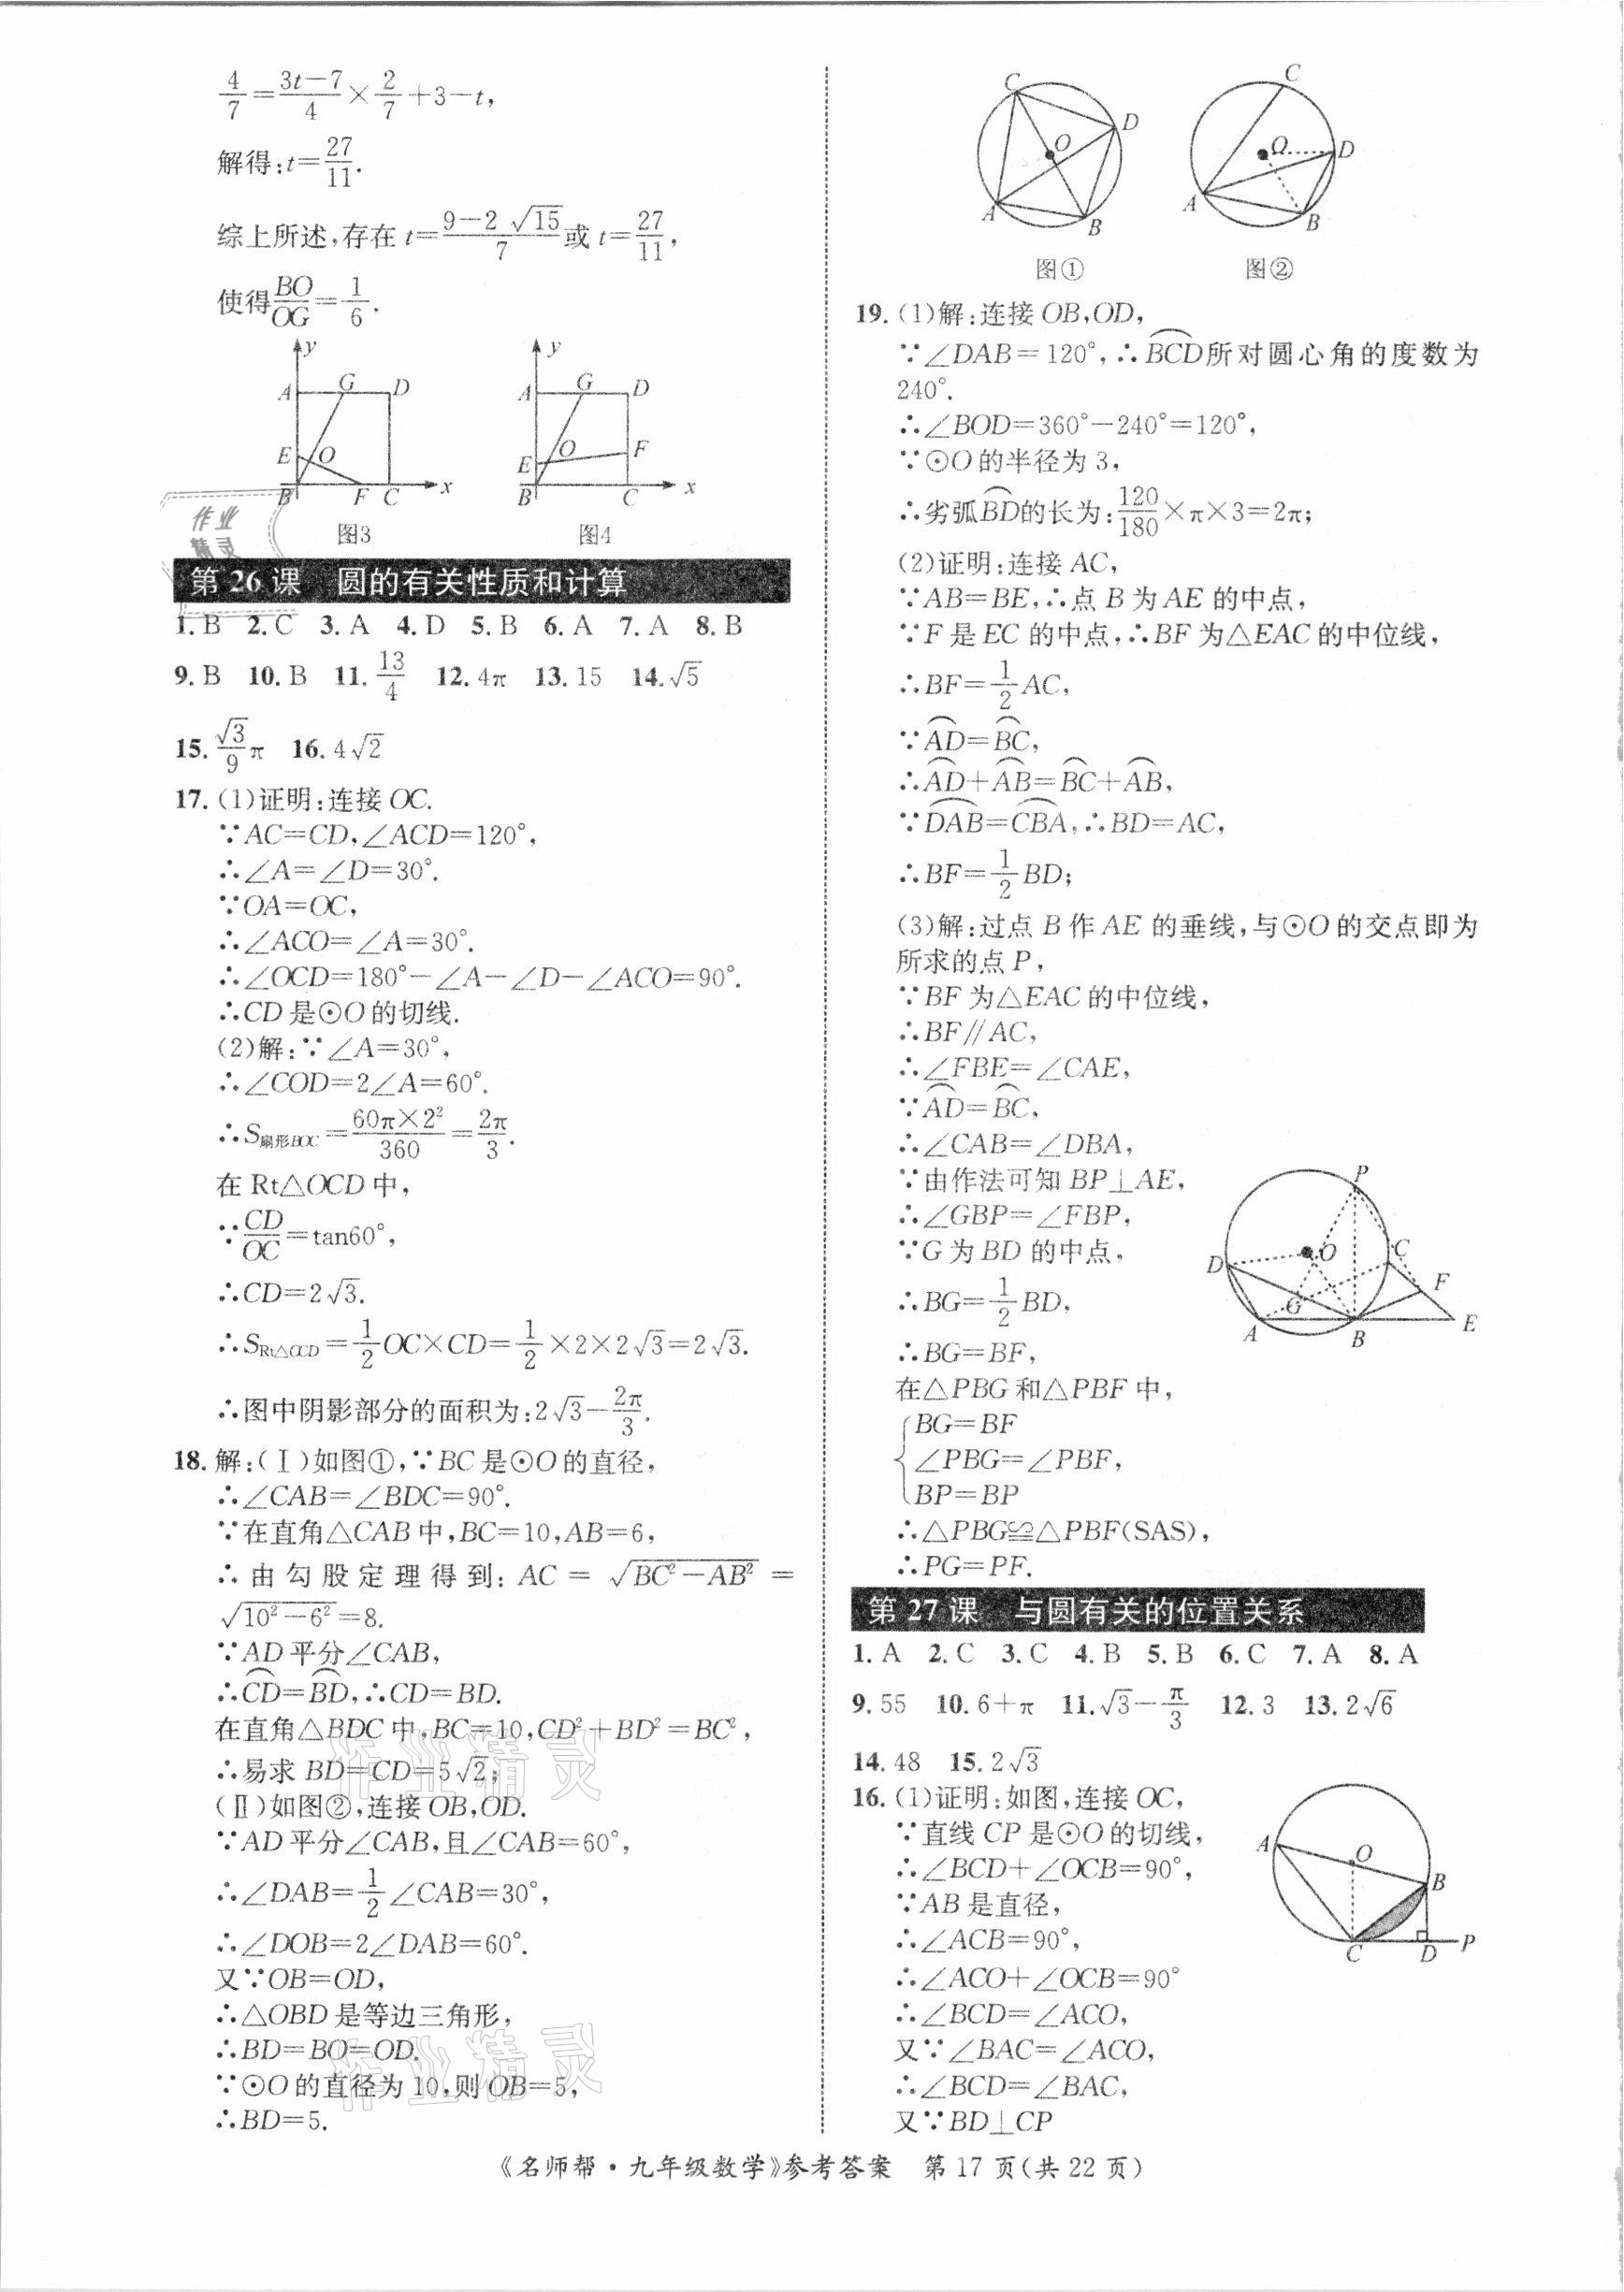 4/7=(3t−7)/4×2/7+3−t,
解得:t=27/11.
综上所述,存在 t=(9−2√15)/7或 t=27/11,
使得BO/OG=1/6.
y
A G D
E O
B F C x
图3
y
A G D
E O F
B C x
图4
第 26 课 圆的有关性质和计算
1. B 2. C 3. A 4. D 5. B 6. A 7. A 8. B
9. B 10. B 11. 13/4 12. 4π 13. 15 14. √5
15. √3/9π 16. 4√2
17. (1)证明:连接 OC.
∵AC=CD,∠ACD=120°,
∴∠A=∠D=30°.
∵OA=OC,
∴∠ACO=∠A=30°.
∴∠OCD=180°−∠A−∠D−∠ACO=90°.
∴CD 是⊙O 的切线.
(2)解:∵∠A=30°,
∴∠COD=2∠A=60°.
∴S扇形BOC=60π×2²/360=2π/3.
在 Rt△OCD 中,
∵CD/OC=tan60°,
∴CD=2√3.
∴S_Rt△OCD=1/2 OC×CD=1/2×2×2√3=2√3.
∴图中阴影部分的面积为:2√3−2π/3.
18. 解:(Ⅰ)如图①,∵BC 是⊙O 的直径,
∴∠CAB=∠BDC=90°.
∵在直角△CAB 中,BC=10,AB=6,
∴由勾股定理得到: AC=√(BC²−AB²)=
√(10²−6²)=8.
∵AD 平分∠CAB,
∴⌒CD=⌒BD,∴CD=BD.
在直角△BDC 中,BC=10,CD²+BD²=BC²,
∴易求 BD=CD=5√2;
(Ⅱ)如图②,连接 OB,OD.
∵AD 平分∠CAB,且∠CAB=60°,
∴∠DAB=1/2∠CAB=30°,
∴∠DOB=2∠DAB=60°.
又∵OB=OD,
∴△OBD 是等边三角形,
∴BD=BO=OD.
∵⊙O 的直径为 10,则 OB=5,
∴BD=5.
C D O A B
图①
C O D A B
图②
19. (1)解:连接 OB,OD,
∵∠DAB=120°,∴⌒BCD所对圆心角的度数为
240°.
∴∠BOD=360°−240°=120°,
∵⊙O 的半径为 3,
∴劣弧⌒BD的长为:120/180×π×3=2π;
(2)证明:连接 AC,
∵AB=BE,∴点 B 为 AE 的中点,
∵F 是 EC 的中点,∴BF 为△EAC 的中位线,
∴BF=1/2 AC,
∵⌒AD=⌒BC,
∴⌒AD+⌒AB=⌒BC+⌒AB,
∵⌒DAB=⌒CBA,∴BD=AC,
∴BF=1/2 BD;
(3)解:过点 B 作 AE 的垂线,与⊙O 的交点即为
所求的点 P,
∵BF 为△EAC 的中位线,
∴BF∥AC,
∴∠FBE=∠CAE,
∵⌒AD=⌒BC,
∴∠CAB=∠DBA,
∵由作法可知 BP⊥AE,
∴∠GBP=∠FBP,
∵G 为 BD 的中点,
∴BG=1/2 BD,
∴BG=BF,
在△PBG 和△PBF 中,
{BG=BF
∠PBG=∠PBF,
BP=BP
∴△PBG≌△PBF(SAS),
∴PG=PF.
P
D O C
G F
A B E
第 27 课 与圆有关的位置关系
1. A 2. C 3. C 4. B 5. B 6. C 7. A 8. A
9. 55 10. 6+π 11. √3−π/3 12. 3 13. 2√6
14. 48 15. 2√3
16. (1)证明:如图,连接 OC,
∵直线 CP 是⊙O 的切线,
∴∠BCD+∠OCB=90°,
∵AB 是直径,
∴∠ACB=90°,
∴∠ACO+∠OCB=90°
∴∠BCD=∠ACO,
又∵∠BAC=∠ACO,
∴∠BCD=∠BAC,
又∵BD⊥CP
A O B
C D P
作业
精灵
作业精灵
作业精灵
《名师帮·九年级数学》参考答案 第 17 页(共 22 页)